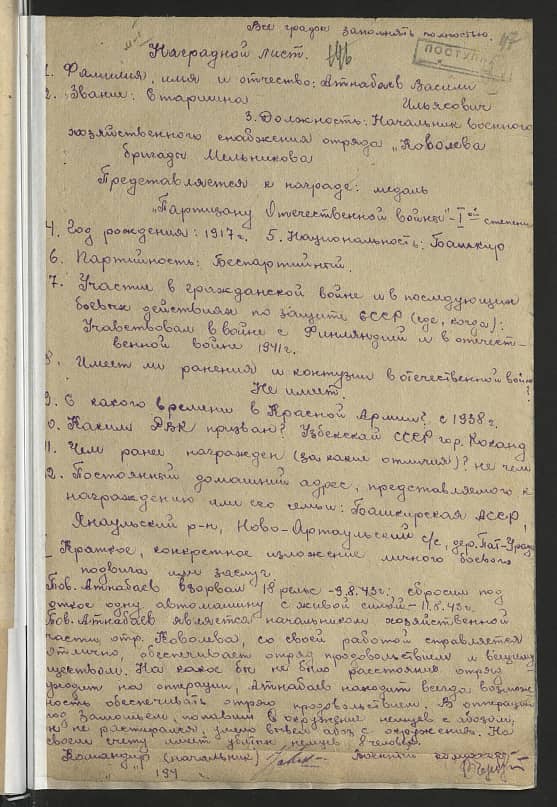 Все графы заполнять полностью.
47
ПОСТУПИ
Наградной лист.
1. Фамилия, имя и отчество: Атнабаев Васили
Ильясович
2. Звание: Старшина
3. Должность: Начальник военного
хозяйственного снабжения отряда "Ковалева
бригады Мельникова
Представляется к награде: медаль
"Партизану Отечественной войны" - I ой степени
4. Год рождения: 1917 г. 5. Национальность: Башкир
6. Партийность: Беспартийный.
7. Участие в гражданской войне и в последующих
боевых действиях по защите СССР (где, когда):
Учавствовал в войне с Финляндией и в отечест-
венной войне 1941 г.
8. Имеет ли ранения и контузии в отечественной войне?
Не имеет.
9. С какого времени в Красной Армии? с 1938 г.
0. Каким РВК призван? Узбекской СССР гор. Коканд
11. Чем ранее награжден (за какие отличия)? не чем
2. Постоянный домашний адрес, представляемого к
награждению или его семьи: Башкирская АССР,
Янаульский р-н, Ново-Артаульский с/с, дер.
Краткое, конкретное изложение личного боевого
подвига или заслуг
Тов. Атнабаев взорвал 18 рельс - 9.8.43 г; сбросил под
откос одну автомашину с живой силой - 11.8.43 г.
Тов. Атнабаев является начальником хозяйственной
части отр. Ковалева, со своей работой справляется
отлично, обеспечивает отряд продовольствием и вещиму
ществом. На какое бы не было расстояние отряд
уходит на операции, Атнабаев находит всегда возмож-
ность обеспечивать отряд продовольствием. В операции
под Замошьем, попавши в окружение немцев с обозом,
и не растерялся, умело вывел обоз с окружения. На
своем счету имеет убитых немцев 8 человек.
Командир (начальник) Военный комиссар
" 194 г.